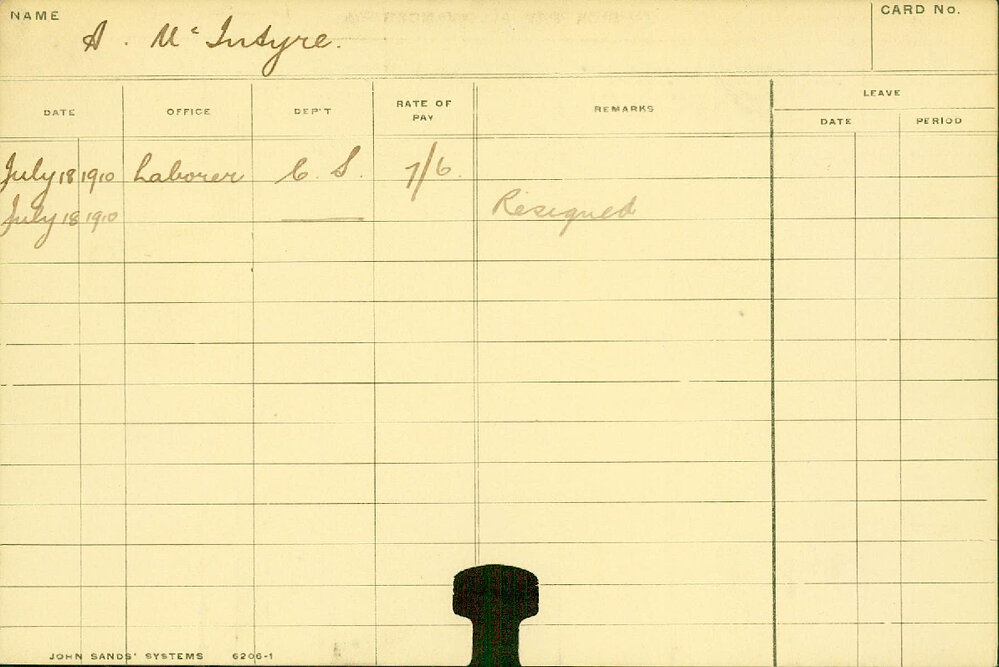 NAME
A. McIntyre.
CARD No.
DATE OFFICE DEP'T RATE OF PAY REMARKS LEAVE
DATE PERIOD
July 18 1910 Laborer C. S. 7/6.
July 18 1910 —— Resigned
JOHN SANDS' SYSTEMS 6206-1